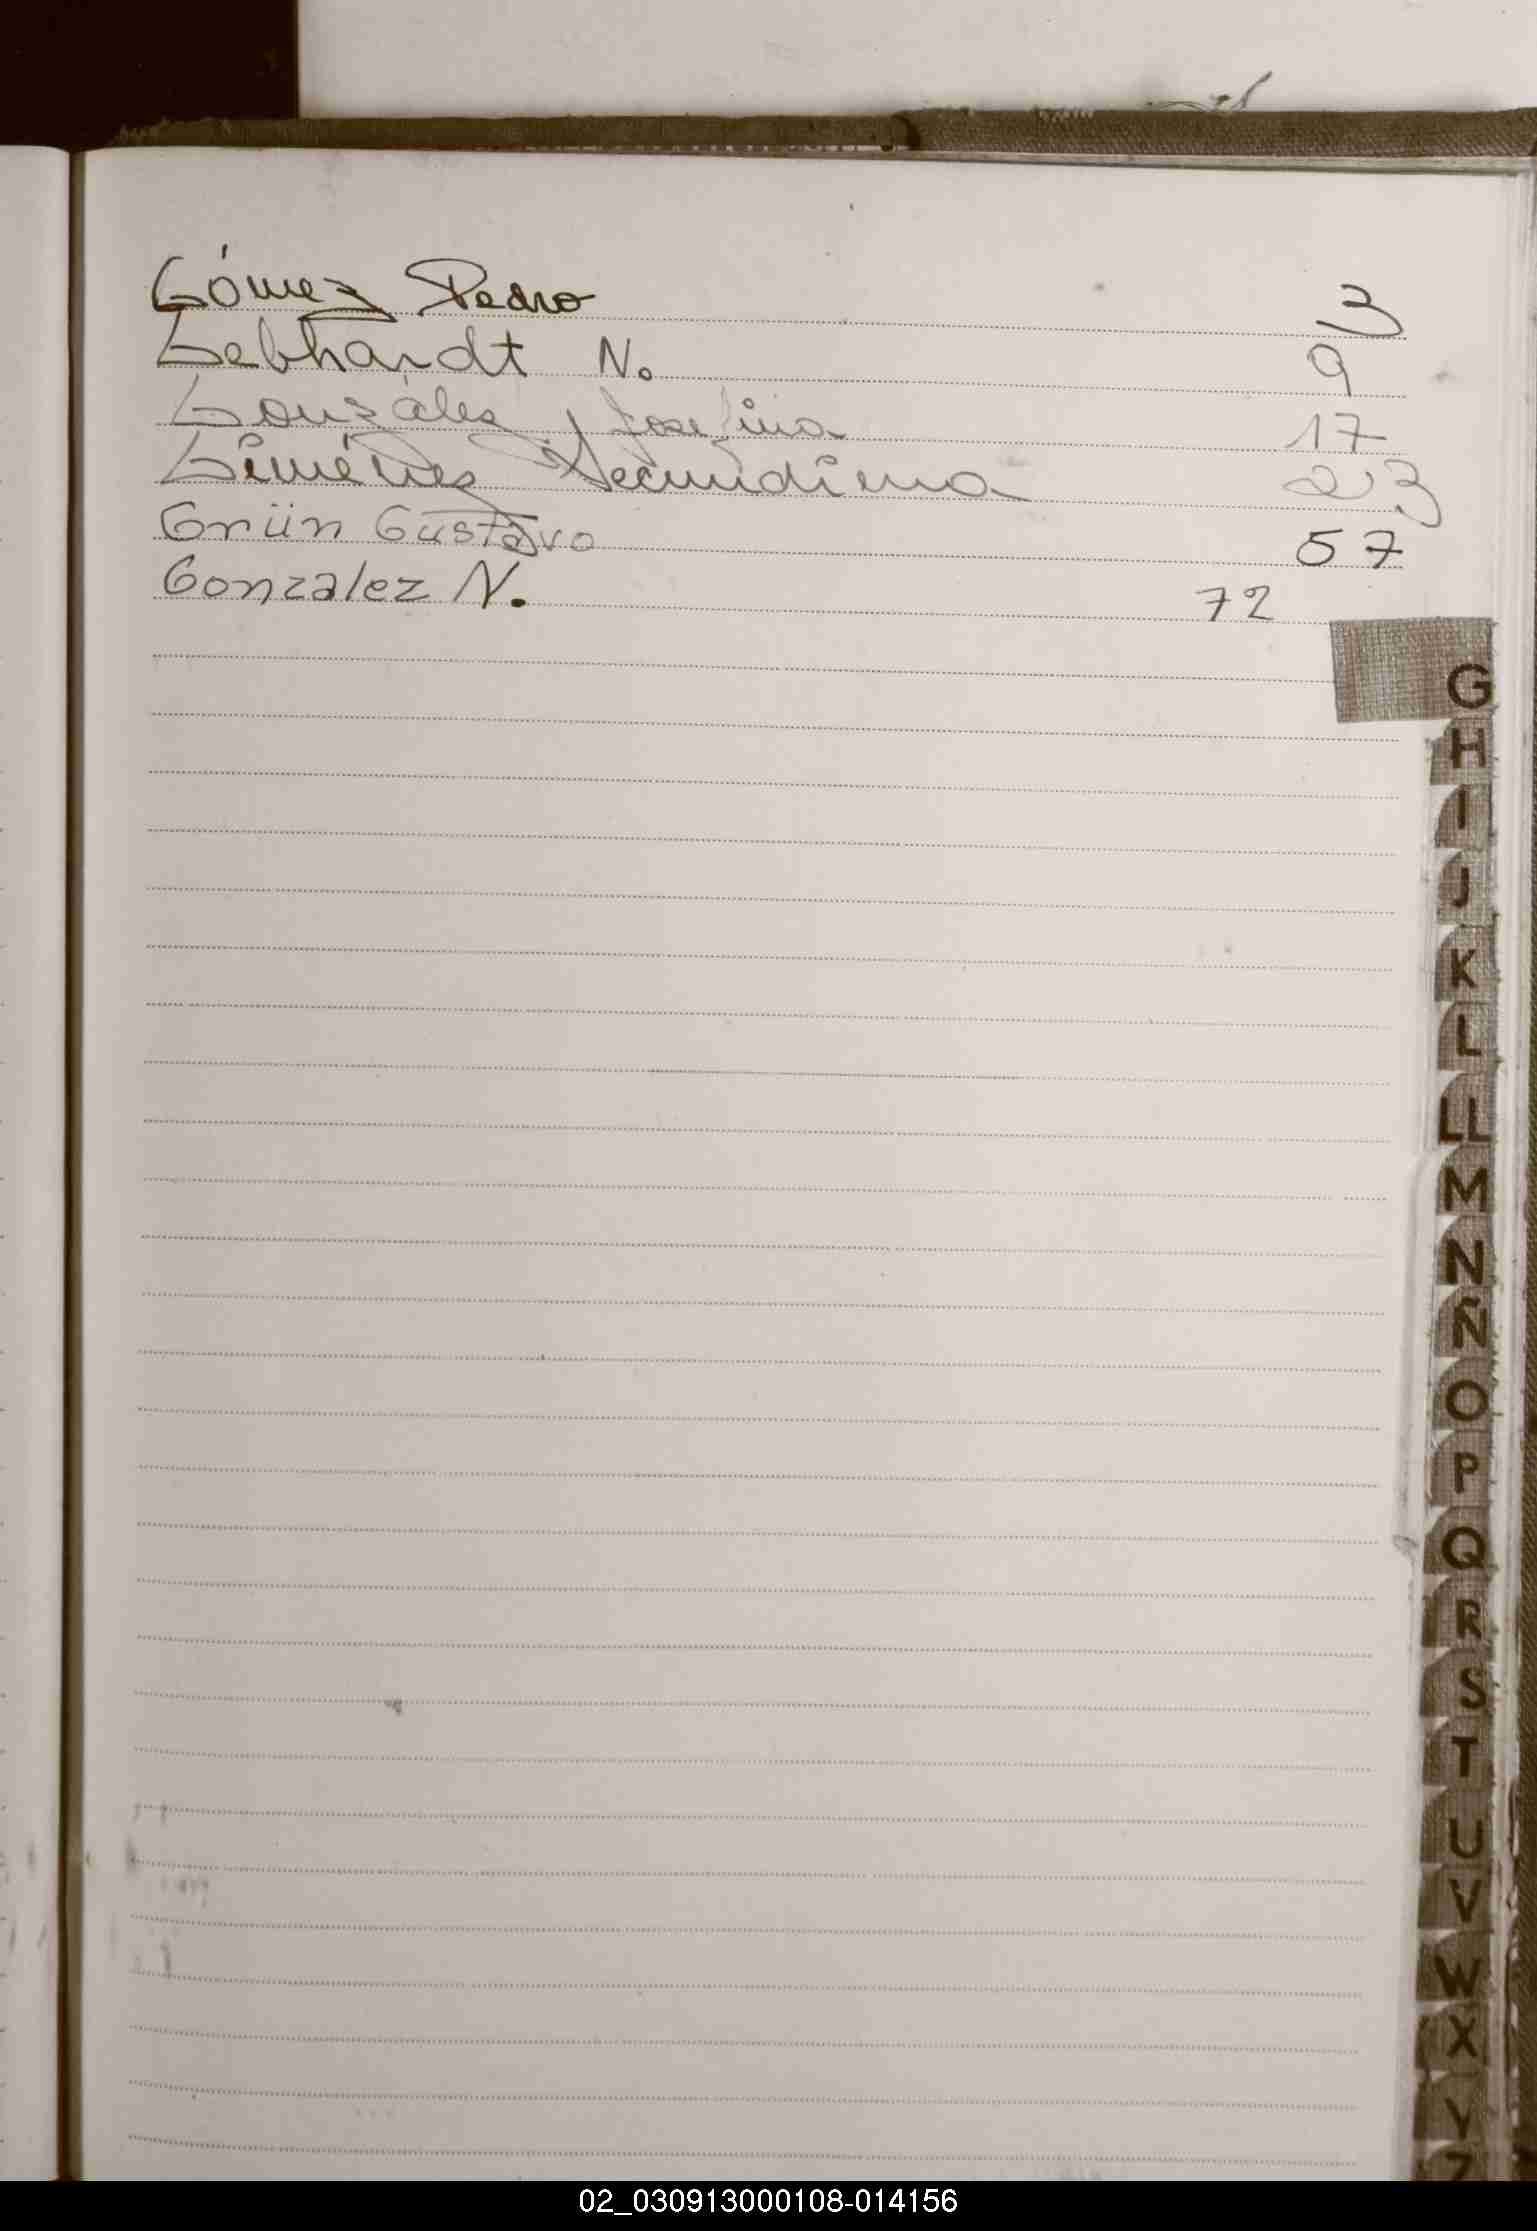 Gómez Pedro 3
Gebhardt N. 9
González Josefina 17
Giménez Secundina 23
Grün Gustavo 57
Gonzalez N. 72
G
H
I
J
K
L
LL
M
N
Ñ
O
P
Q
R
S
T
U
V
W
X
Y
Z
02_030913000108-014156